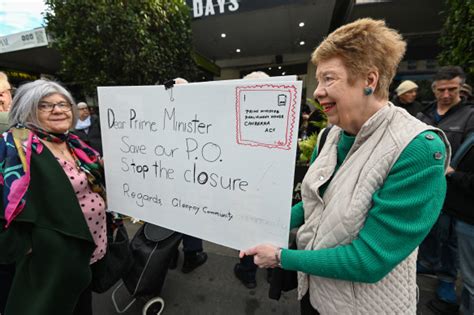 DAYS
Dear Prime Minister
Save our P.O.
Stop the closure!
Regards Community
PRIME MINISTER
PARLIAMENT HOUSE
CANBERRA
ACT